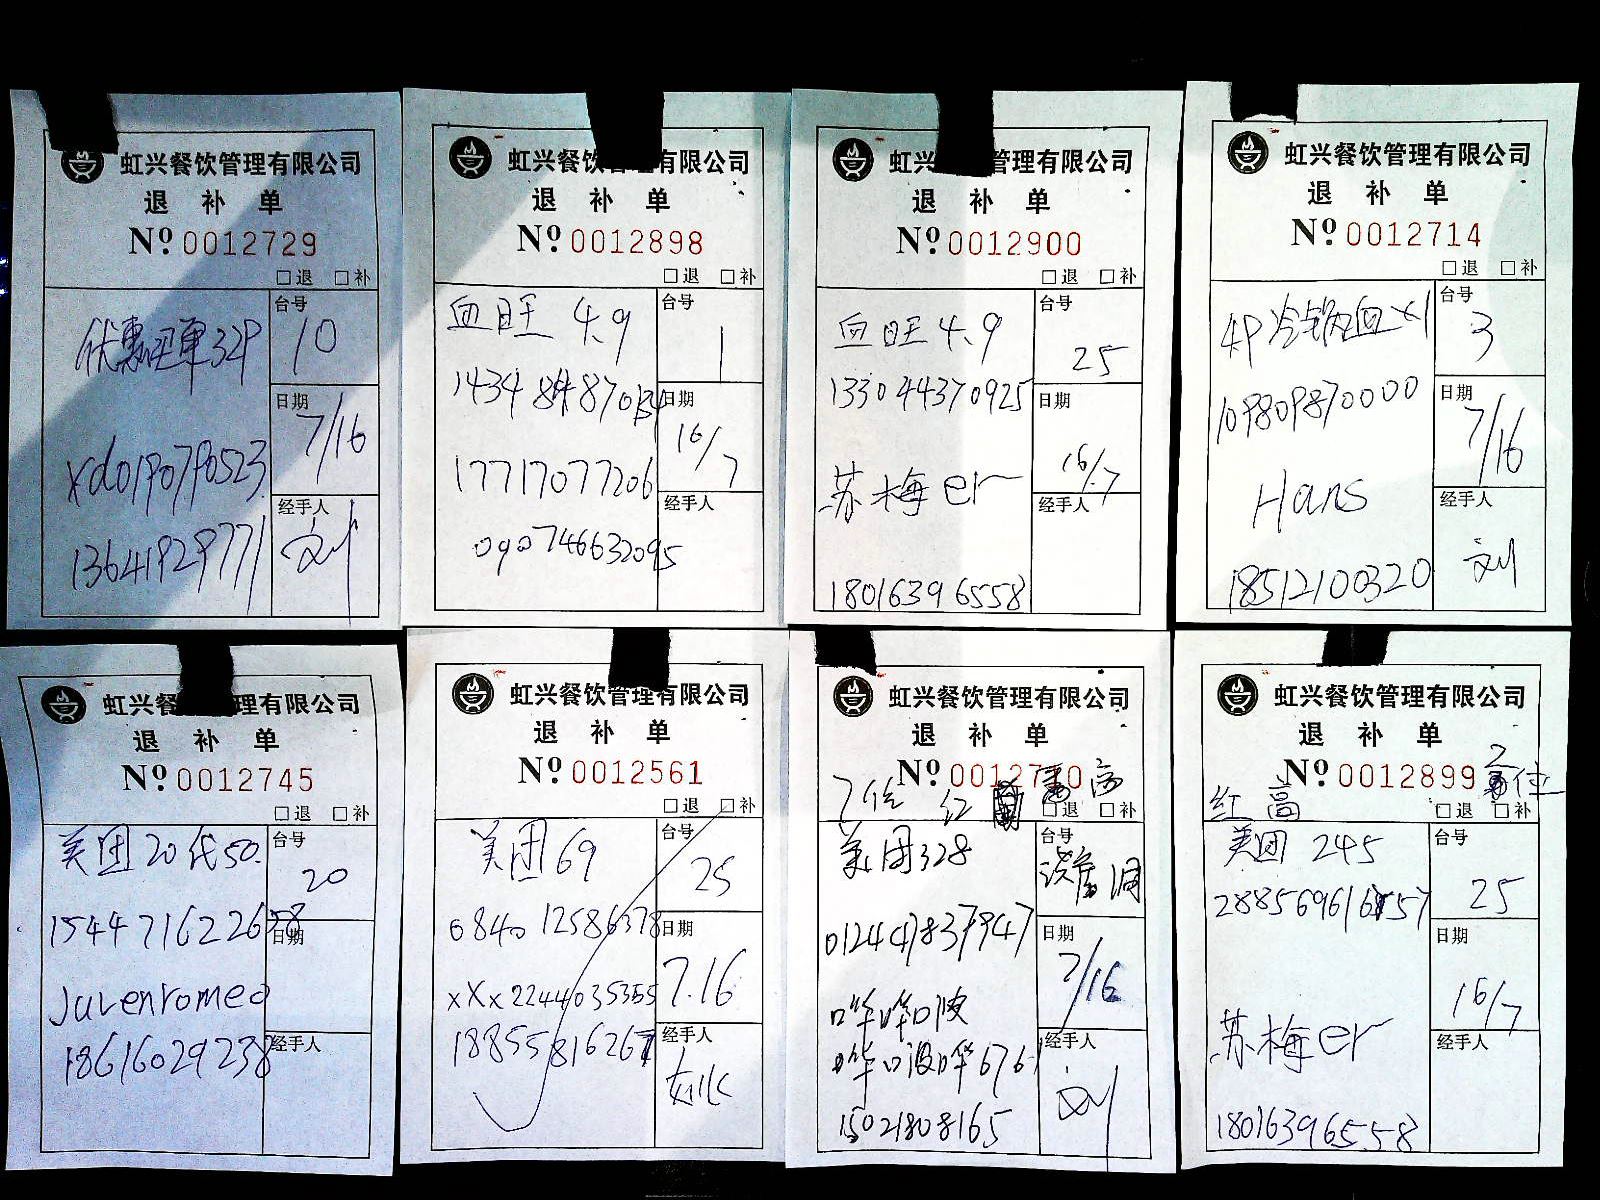 虹兴餐饮管理有限公司
退 补 单
Nº 0012729
□退 □补
优惠买单 32P
xd0190790523
13641929771
台号
10
日期
7/16
经手人
刘
虹兴餐饮管理有限公司
退 补 单
Nº 0012898
□退 □补
血旺 4.9
17717077206
090746632095
台号
1
日期
16/7
经手人
虹兴餐饮管理有限公司
退 补 单
Nº 0012900
□退 □补
血旺 4.9
133044370925
苏梅er
18016396558
台号
25
日期
16/7
经手人
虹兴餐饮管理有限公司
退 补 单
Nº 0012714
□退 □补
4P 冷锅血x1
109809870000
Hans
18512100320
台号
3
日期
7/16
经手人
刘
虹兴餐饮管理有限公司
退 补 单
Nº 0012745
□退 □补
美团 20代50.
154471622658
Juvenromeo
18616029238
台号
20
日期
经手人
虹兴餐饮管理有限公司
退 补 单
Nº 0012561
□退 □补
美团 69
0840 12586378
xXx2244035355
18855816267
台号
25
日期
7.16
经手人
虹兴餐饮管理有限公司
退 补 单
□退 □补
美团328
012447837947
15021808165
台号
日期
7/16
经手人
刘
虹兴餐饮管理有限公司
退 补 单
Nº 0012899
□退 □补
美团 245
苏梅er
18016396558
台号
25
日期
16/7
经手人